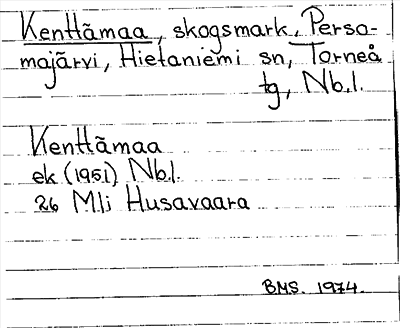 Kenttämaa, skogsmark, Perso-
majärvi, Hietaniemi sn, Torneå
tg, Nb.l.
Kenttämaa
ek (1951) Nb.l.
26 Mlj Husavaara
BMS. 1974.